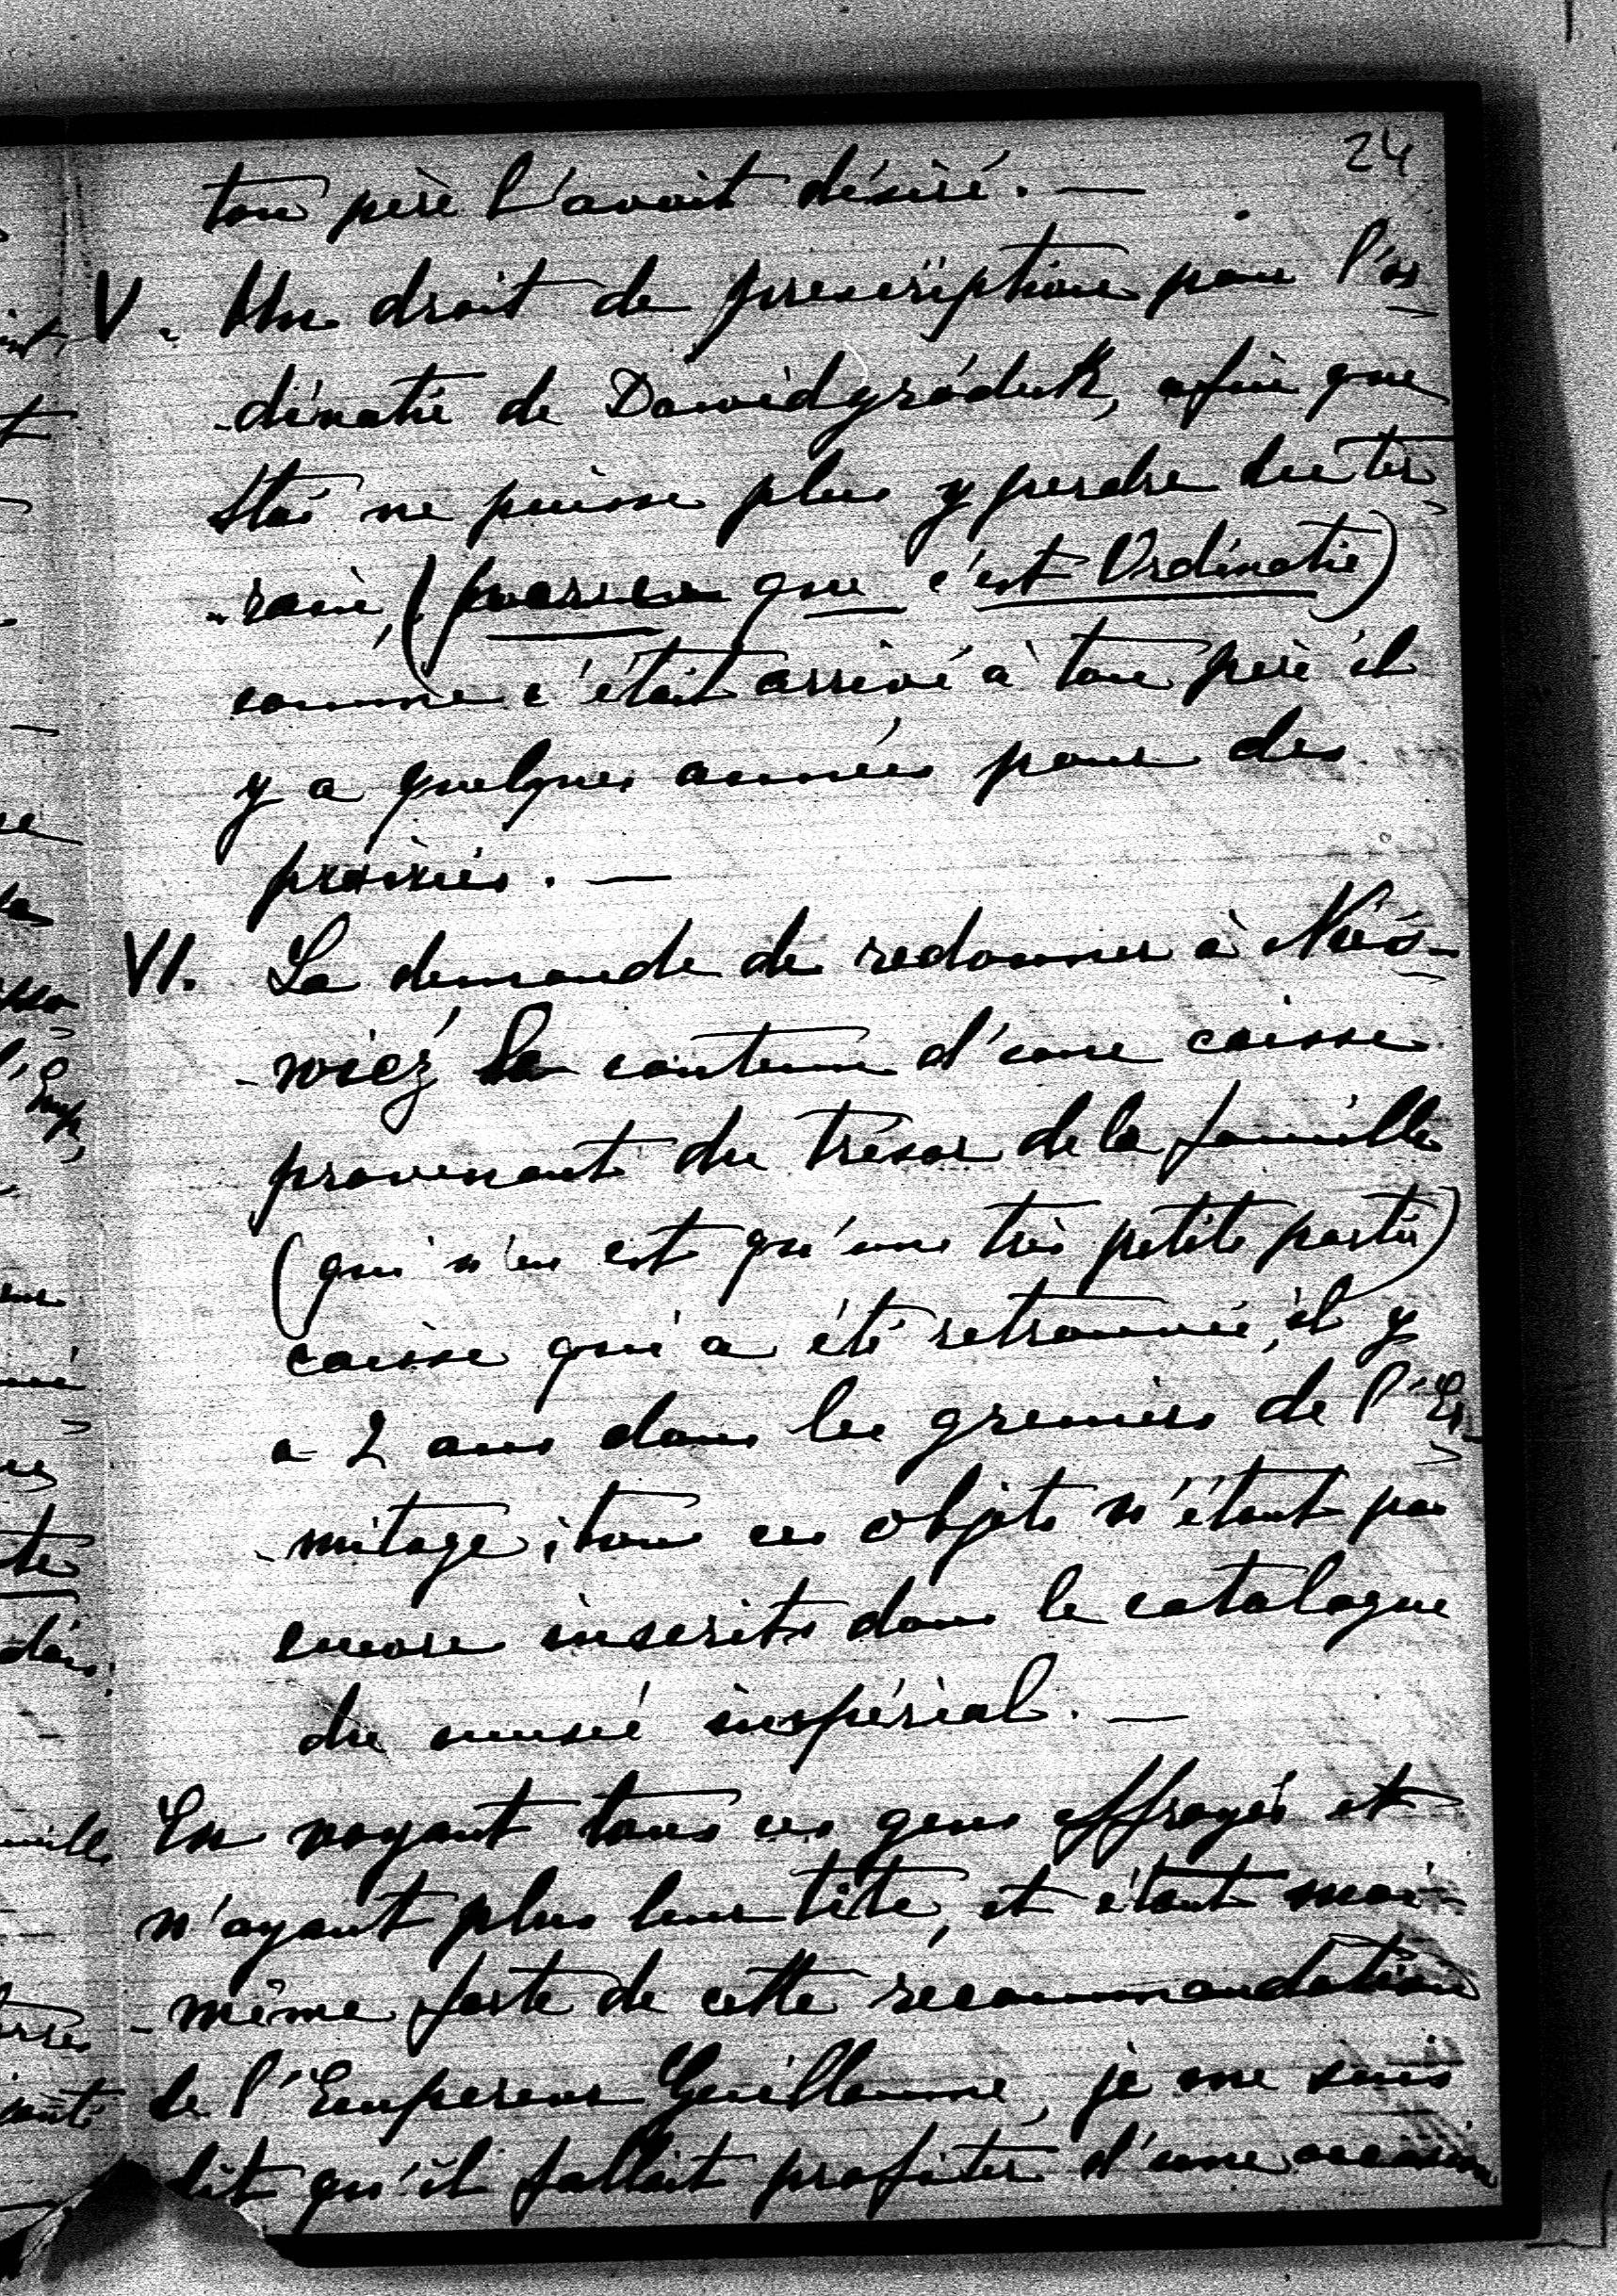 24
ton père l'avait désiré. —
V. Un droit de prescription pour l'or
-dinatie de Dawidgródek, afin que
Staś ne puisse plus y perdre du ter
-rain, (parce que c'est Ordinatie)
comme c'était arrivé à ton père il
y a quelques années pour des
prairies. —
VI. La demande de redonner à Nieś-
-wież le contenu d'une caisse
provenant du trésor de la famille
(qui n'en est qu'une très petite partie)
caisse qui a été retrouvée, il y
a 2 ans dans les greniers de l'Er
-mitage; tous ces objets n'étant pas
encore inscrits dans le catalogue
du musée impérial. —
En voyant tous ces gens effrayés et
n'ayant plus leur tête, et étant moi-
-même forte de cette recommandation
de l'Empereur Guillaume, je me suis
dit qu'il fallait profiter d'une occasion